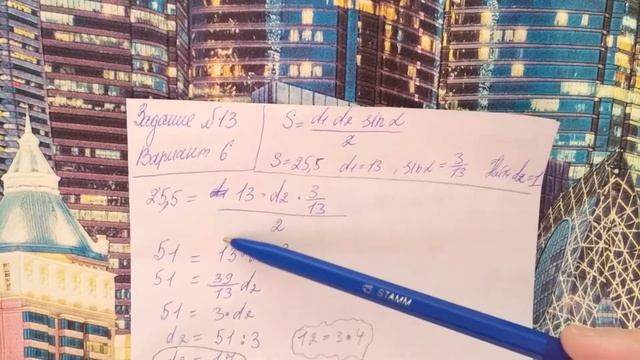 Задание №13
Вариант 6
S = d₁ d₂ sin α / 2
S = 25,5 d₁ = 13 , sin α = 3/13 d₂ =
25,5 = 13 · d₂ · 3/13 / 2
51 = 13
51 = 39/13 d₂
51 = 3 · d₂
d₂ = 51 : 3
12 = 3 · 4
d₂ = 17
STAMM